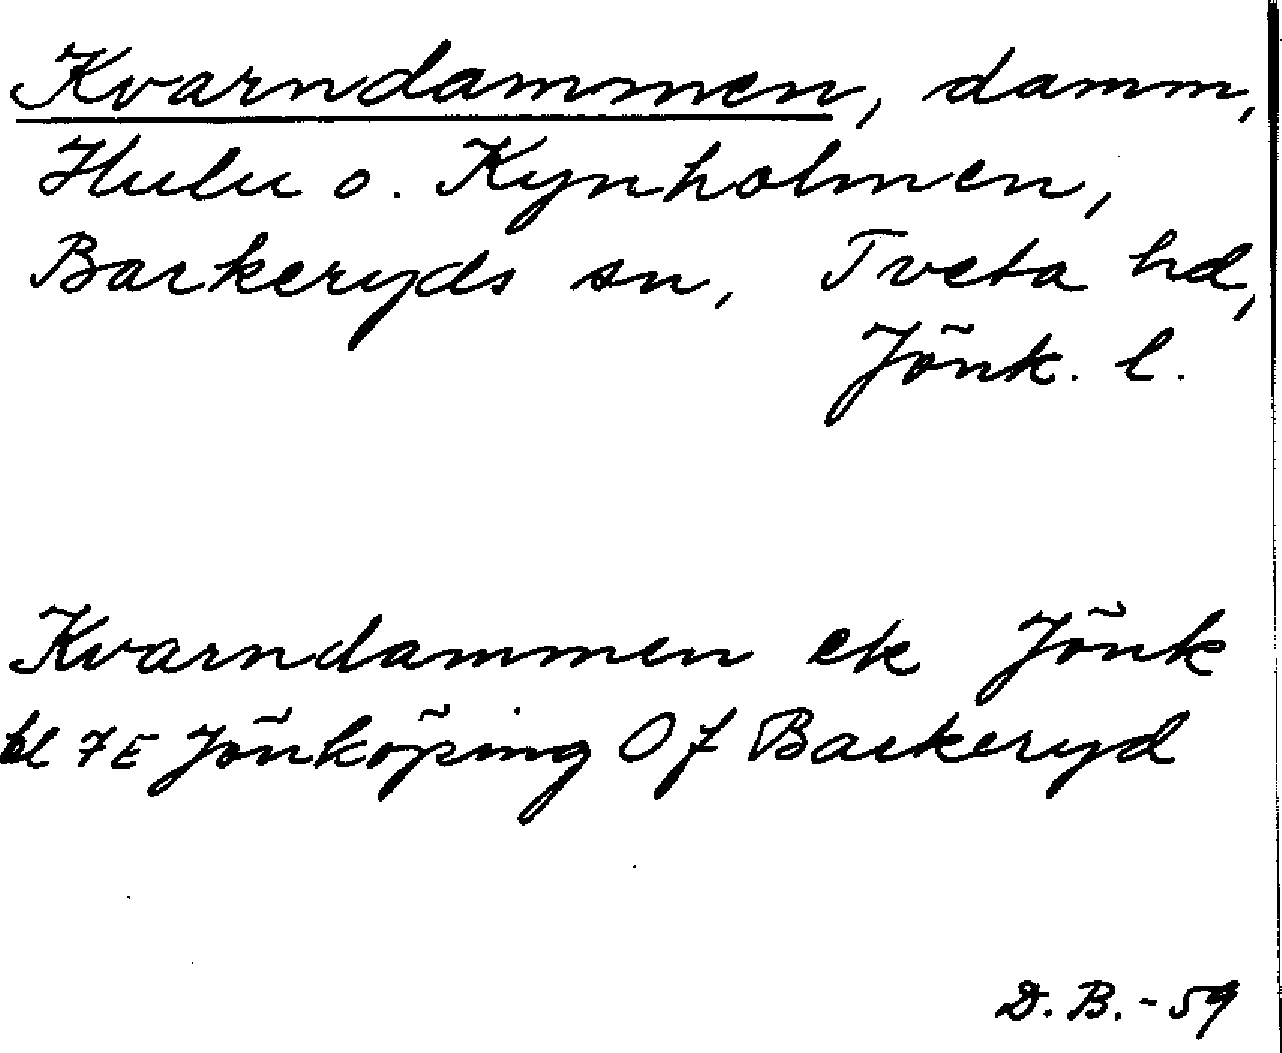 Kvarndammen, damm,
Hulu o. Kynholmen,
Barkeryds sn, Tveta hd,
Jönk. l.
Kvarndammen ek Jönk
bl 7E Jönköping Of Barkeryd
D.B.-59